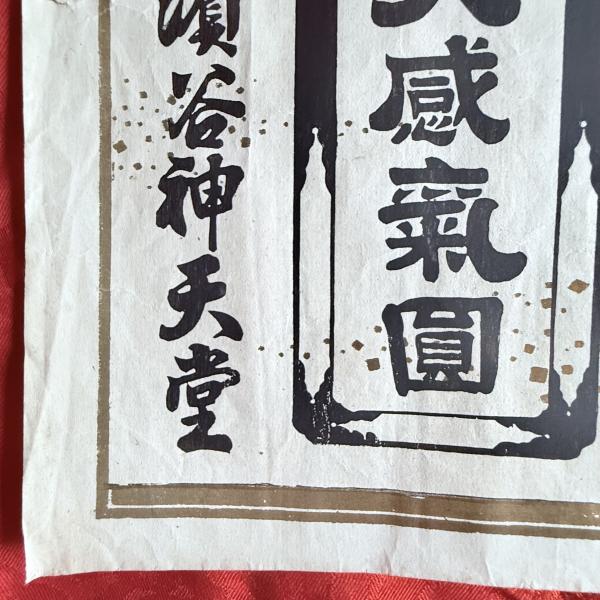 感氣圓
谷神天堂